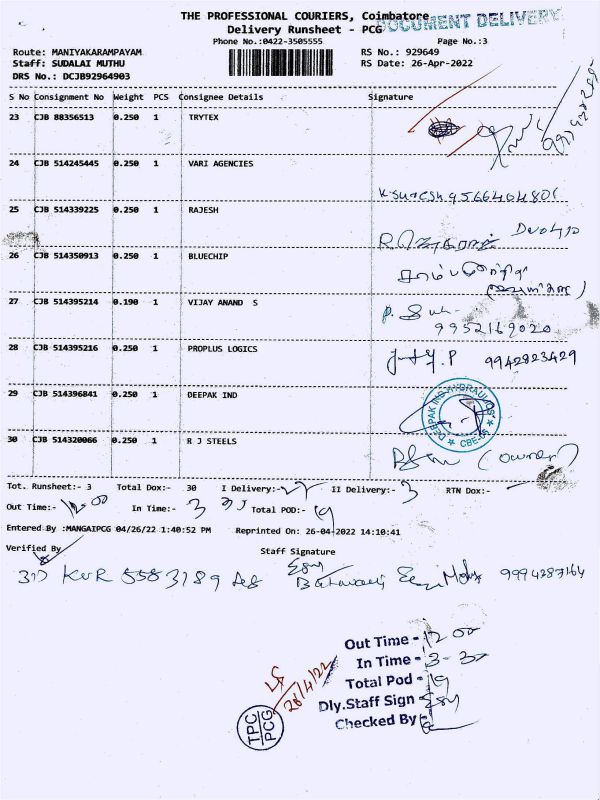 THE PROFESSIONAL COURIERS, Coimbatore
DOCUMENT DELIVERY
Delivery Runsheet - PCG
Phone No.:0422-3505555 Page No.:3
Route: MANIYAKARAMPAYAM RS No.: 929649
Staff: SUDALAI MUTHU RS Date: 26-Apr-2022
DRS No.: DCJB92964903
S No Consignment No Weight PCS Consignee Details Signature
23 CJB 88356513 0.250 1 TRYTEX
24 CJB 514245445 0.250 1 VARI AGENCIES
K. Suresh 9566404801
25 CJB 514339225 0.250 1 RAJESH
26 CJB 514350913 0.250 1 BLUECHIP
27 CJB 514395214 0.190 1 VIJAY ANAND S
9952169020
28 CJB 514395216 0.250 1 PROPLUS LOGICS
9942923429
29 CJB 514396841 0.250 1 DEEPAK IND
DEEPAK IND HYDRAULICS
CBE-06
30 CJB 514320066 0.250 1 R J STEELS
(owner)
Tot. Runsheet:- 3 Total Dox:- 30 I Delivery:- 27 II Delivery:- 3 RTN Dox:- —
Out Time:- 12.00 In Time:- 3 30 Total POD:- 19
Entered By :MANGAIPCG 04/26/22 1:40:52 PM Reprinted On: 26-04-2022 14:10:41
Verified By Staff Signature
9994287164
Out Time - 12 00
In Time - 3-30
Total Pod - 19
Dly.Staff Sign -
Checked By -
26/4/22
TPC
PCG